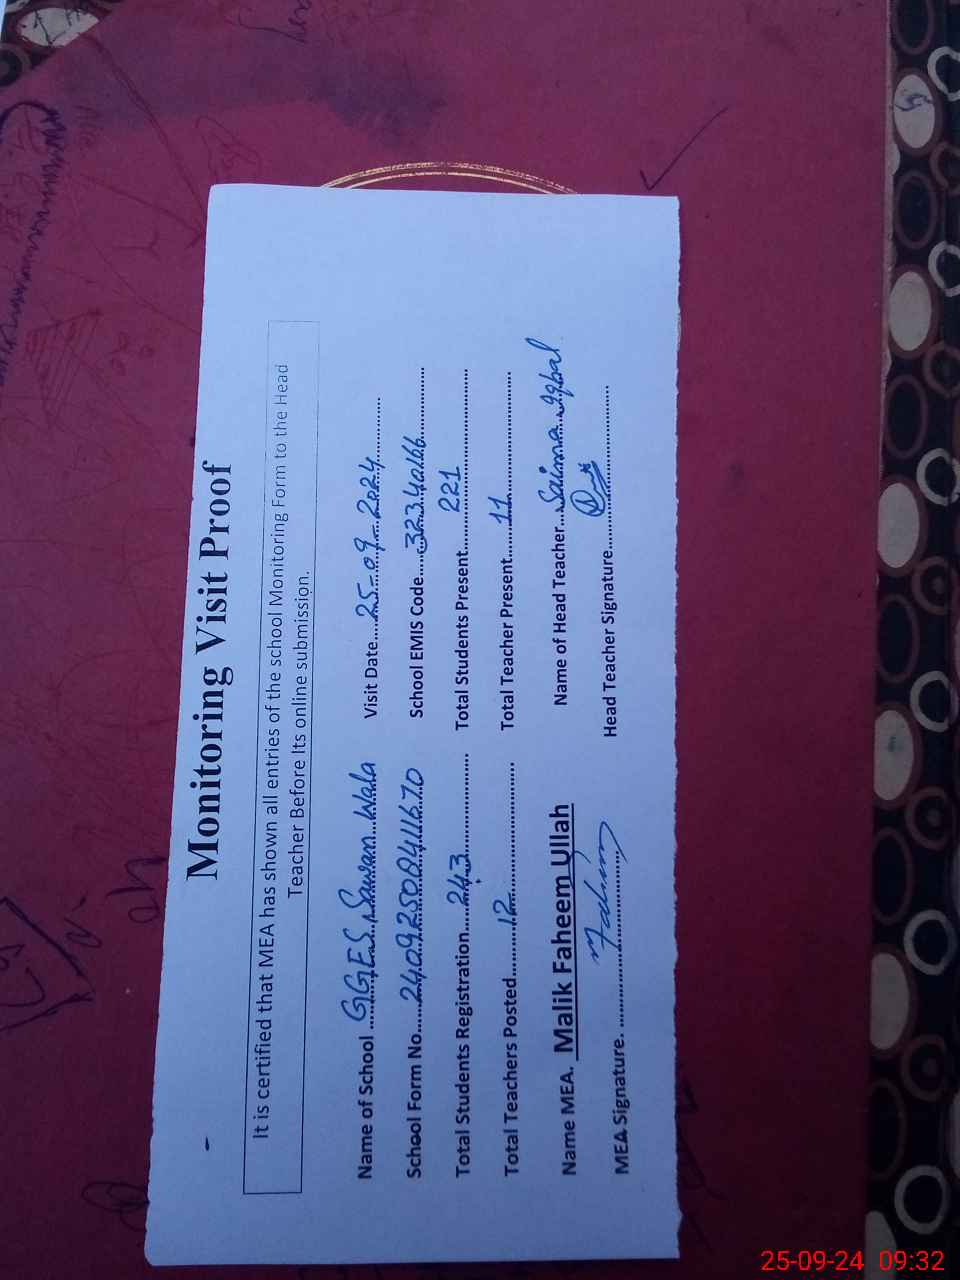 Monitoring Visit Proof
It is certified that MEA has shown all entries of the school Monitoring Form to the Head
Teacher Before Its online submission.
Name of School GGES Sawan Wala Visit Date 25-09-2024
School Form No. 24092508411670 School EMIS Code 32340166
Total Students Registration 243 Total Students Present 221
Total Teachers Posted 12 Total Teacher Present 11
Name MEA. Malik Faheem Ullah Name of Head Teacher Saima Iqbal
MEA Signature. Fahim Head Teacher Signature
25-09-24 09:32